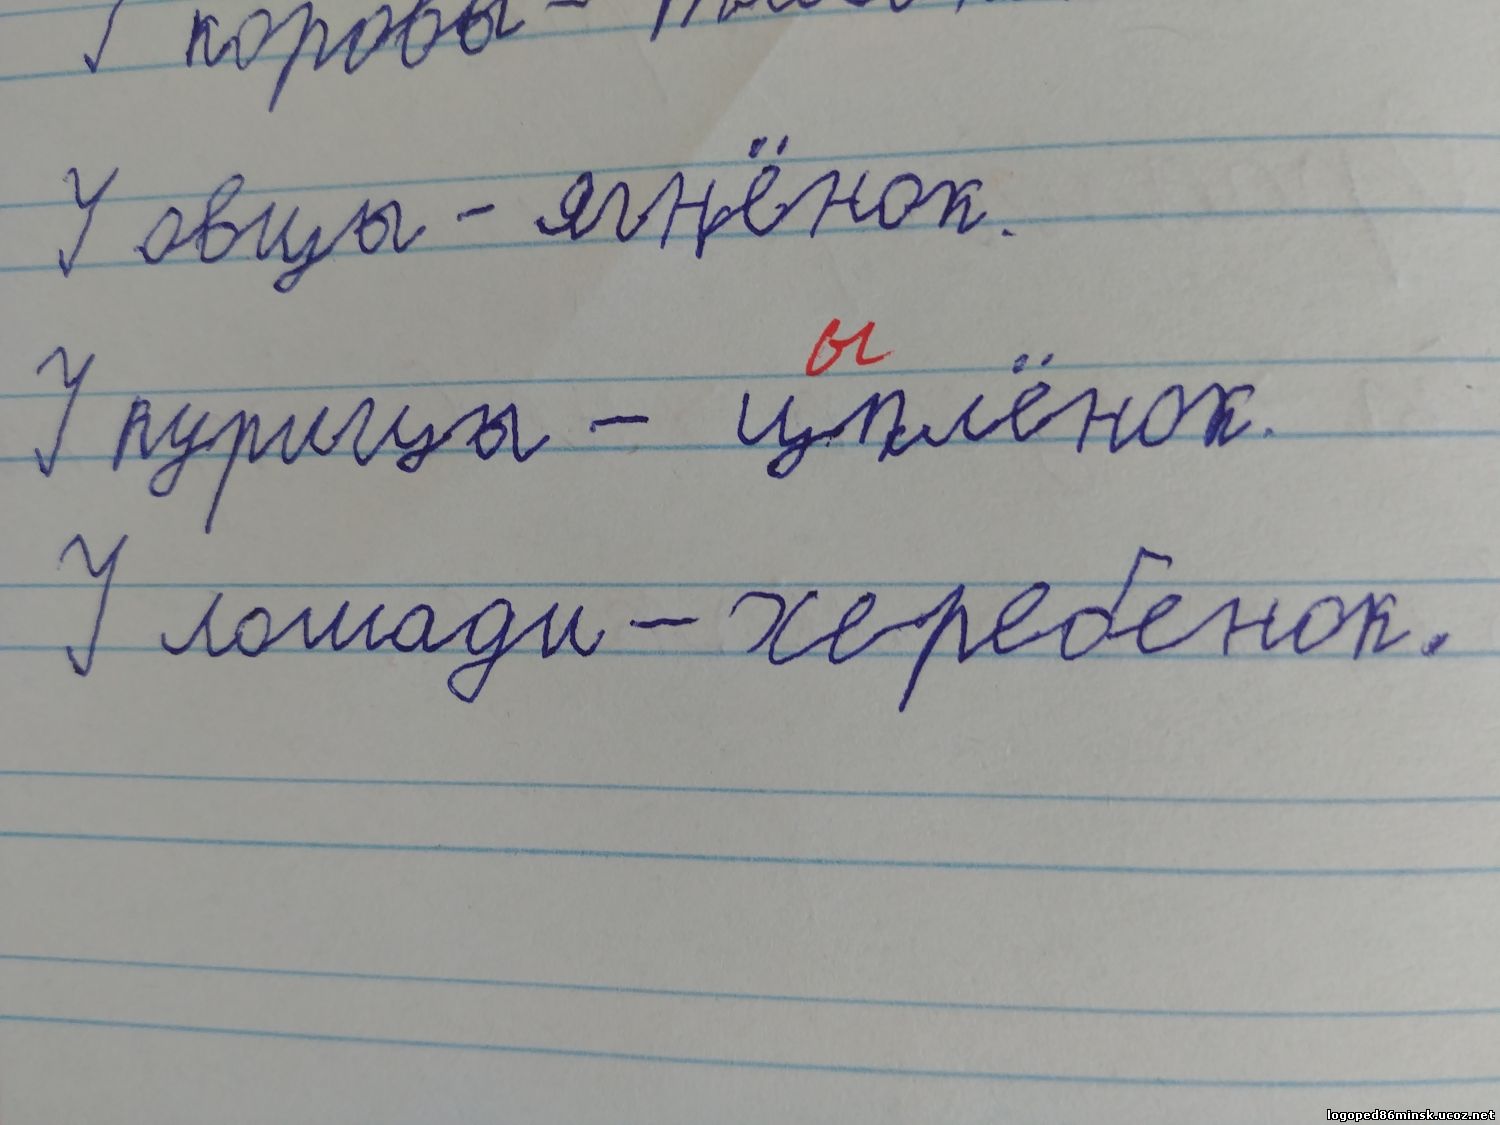 У коровы -
У овцы - ягнёнок.
ы
У курицы - цплёнок.
У лошади - херебенок.
logoped86minsk.ucoz.net